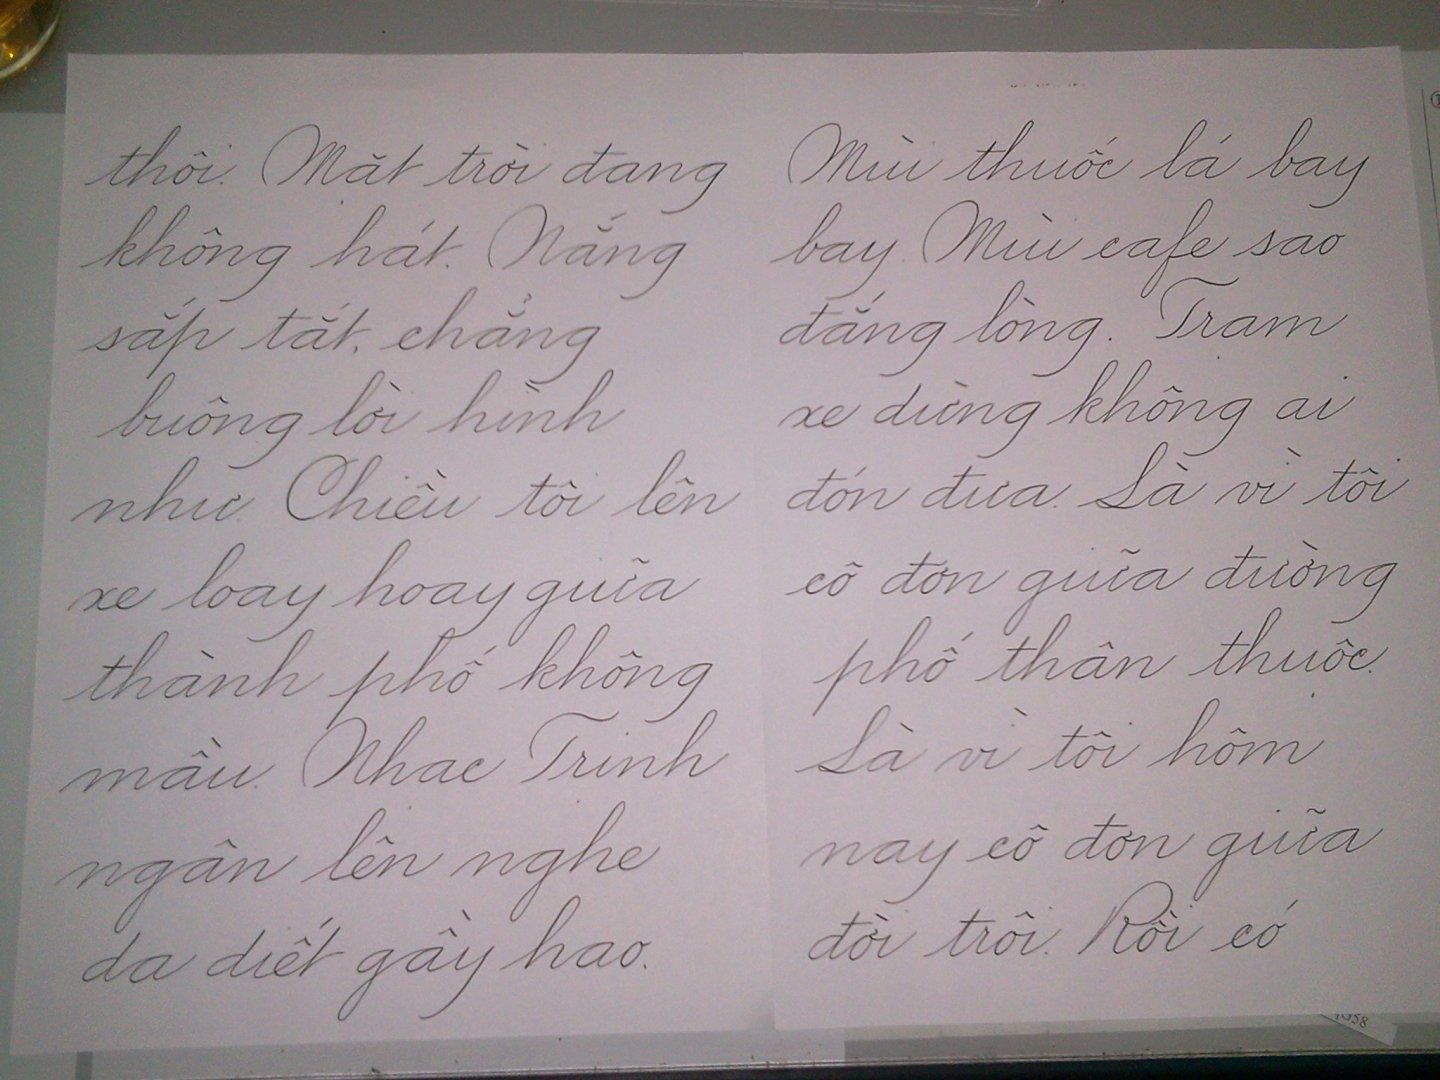 thôi. Mặt trời đang
không hát. Nắng
sắp tắt, chẳng
buông lời hình
như. Chiều tôi lên
xe loay hoay giữa
thành phố không
mầu. Nhạc Trịnh
ngân lên nghe
da diết gầy hao.
Mùi thuốc lá bay
bay. Mùi cafe sao
đắng lòng. Trạm
xe dừng không ai
đón đưa. Là vì tôi
cô đơn giữa đường
phố thân thuộc.
Là vì tôi hôm
nay cô đơn giữa
đời trôi. Rồi có
1958